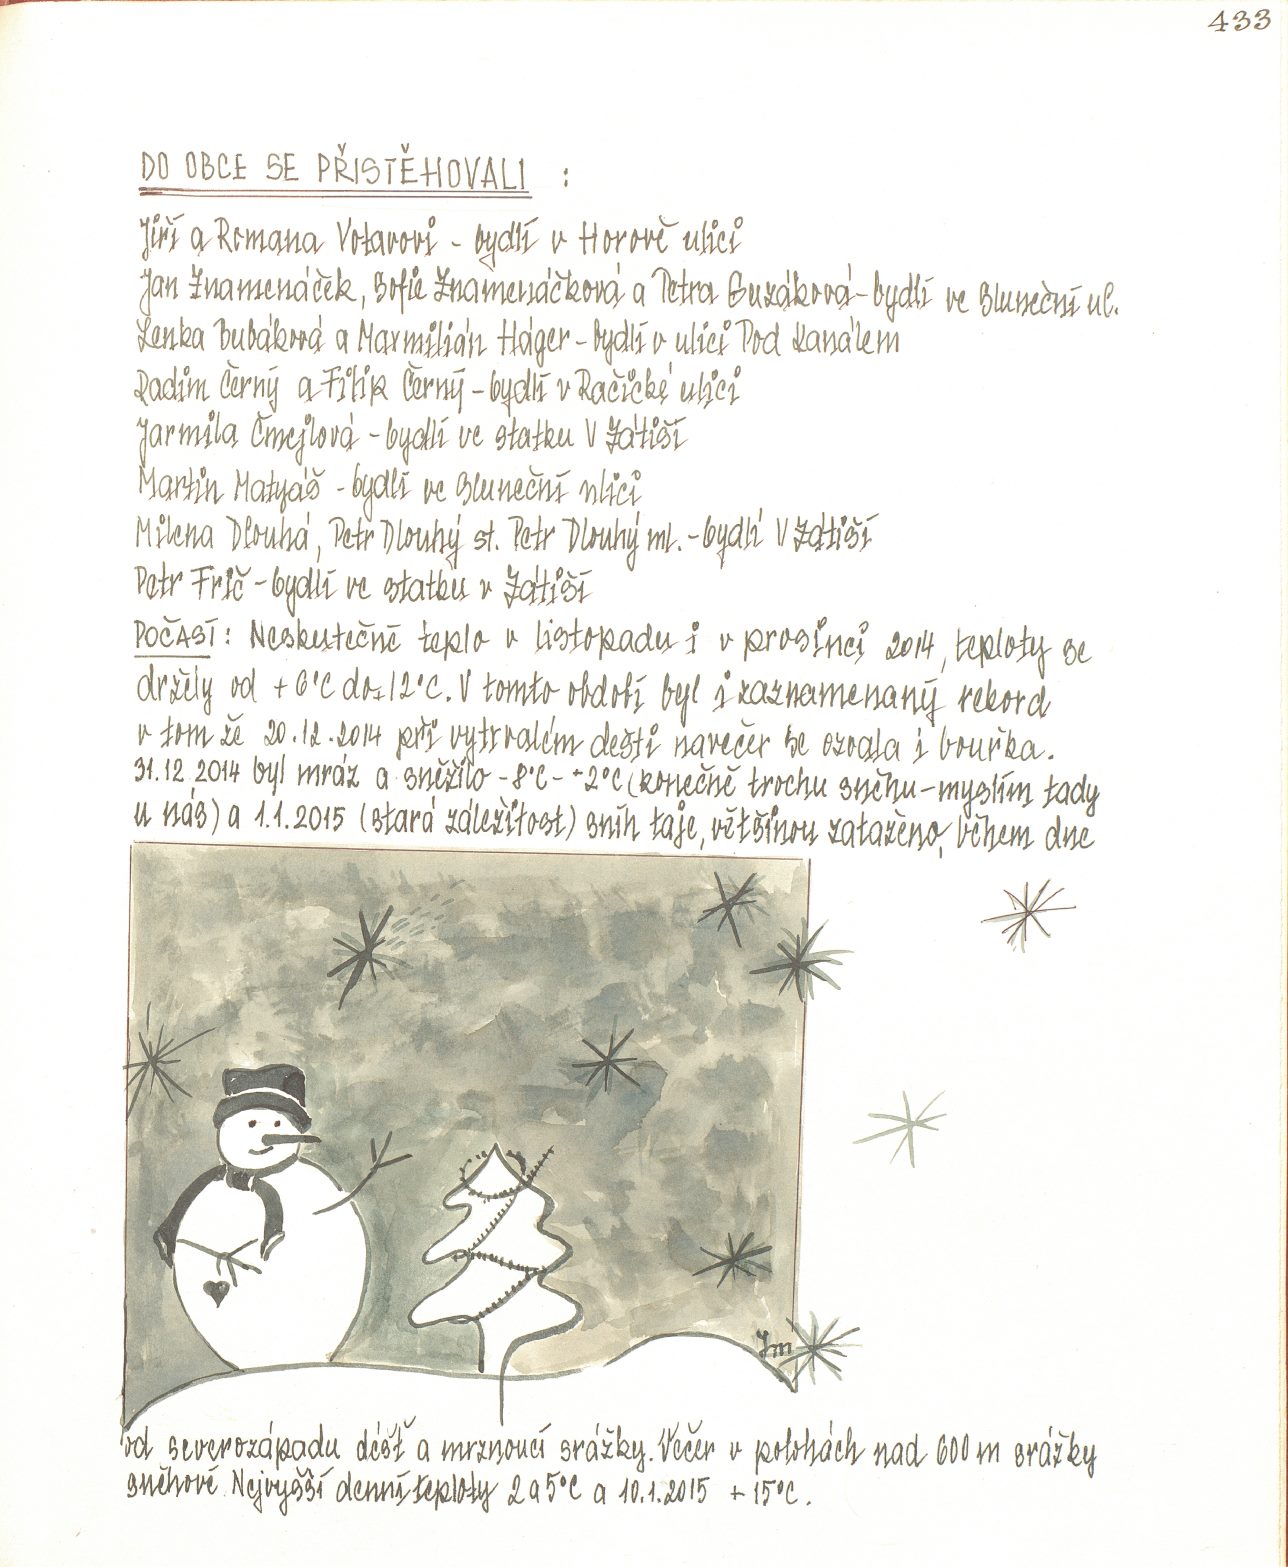 433
DO OBCE SE PŘISTĚHOVALI :
Jiří a Romana Votavovi - bydlí v Horově ulici
Jan Znamenáček, Sofie Znamenáčková a Petra Guzáková - bydlí ve Sluneční ul.
Lenka Bubáková a Maxmilián Háger - bydlí v ulici Pod Kanálem
Radim Černý a Filip Černý - bydlí v Račické ulici
Jarmila Čmejlová - bydlí ve statku V Zátiší
Martin Matyáš - bydlí ve Sluneční ulici
Milena Dlouhá, Petr Dlouhý st. Petr Dlouhý ml. - bydlí V Zátiší
Petr Frič - bydlí ve statku v Zátiší
POČASÍ: Neskutečné teplo v listopadu i v prosinci 2014, teploty se
držely od +6°C do +12°C. V tomto období byl i zaznamenaný rekord
v tom že 20.12.2014 při vytrvalém dešti navečer se ozvala i bouřka.
31.12.2014 byl mráz a sněžilo -8°C - -2°C (konečně trochu sněhu - myslím tady
u nás) a 1.1.2015 (stará záležitost) sníh taje, většinou zataženo, během dne
Jm
od severozápadu déšť a mrznoucí srážky. Večer v polohách nad 600 m srážky
sněhové. Nejvyšší denní teploty 2 a 5°C a 10.1.2015 +15°C.